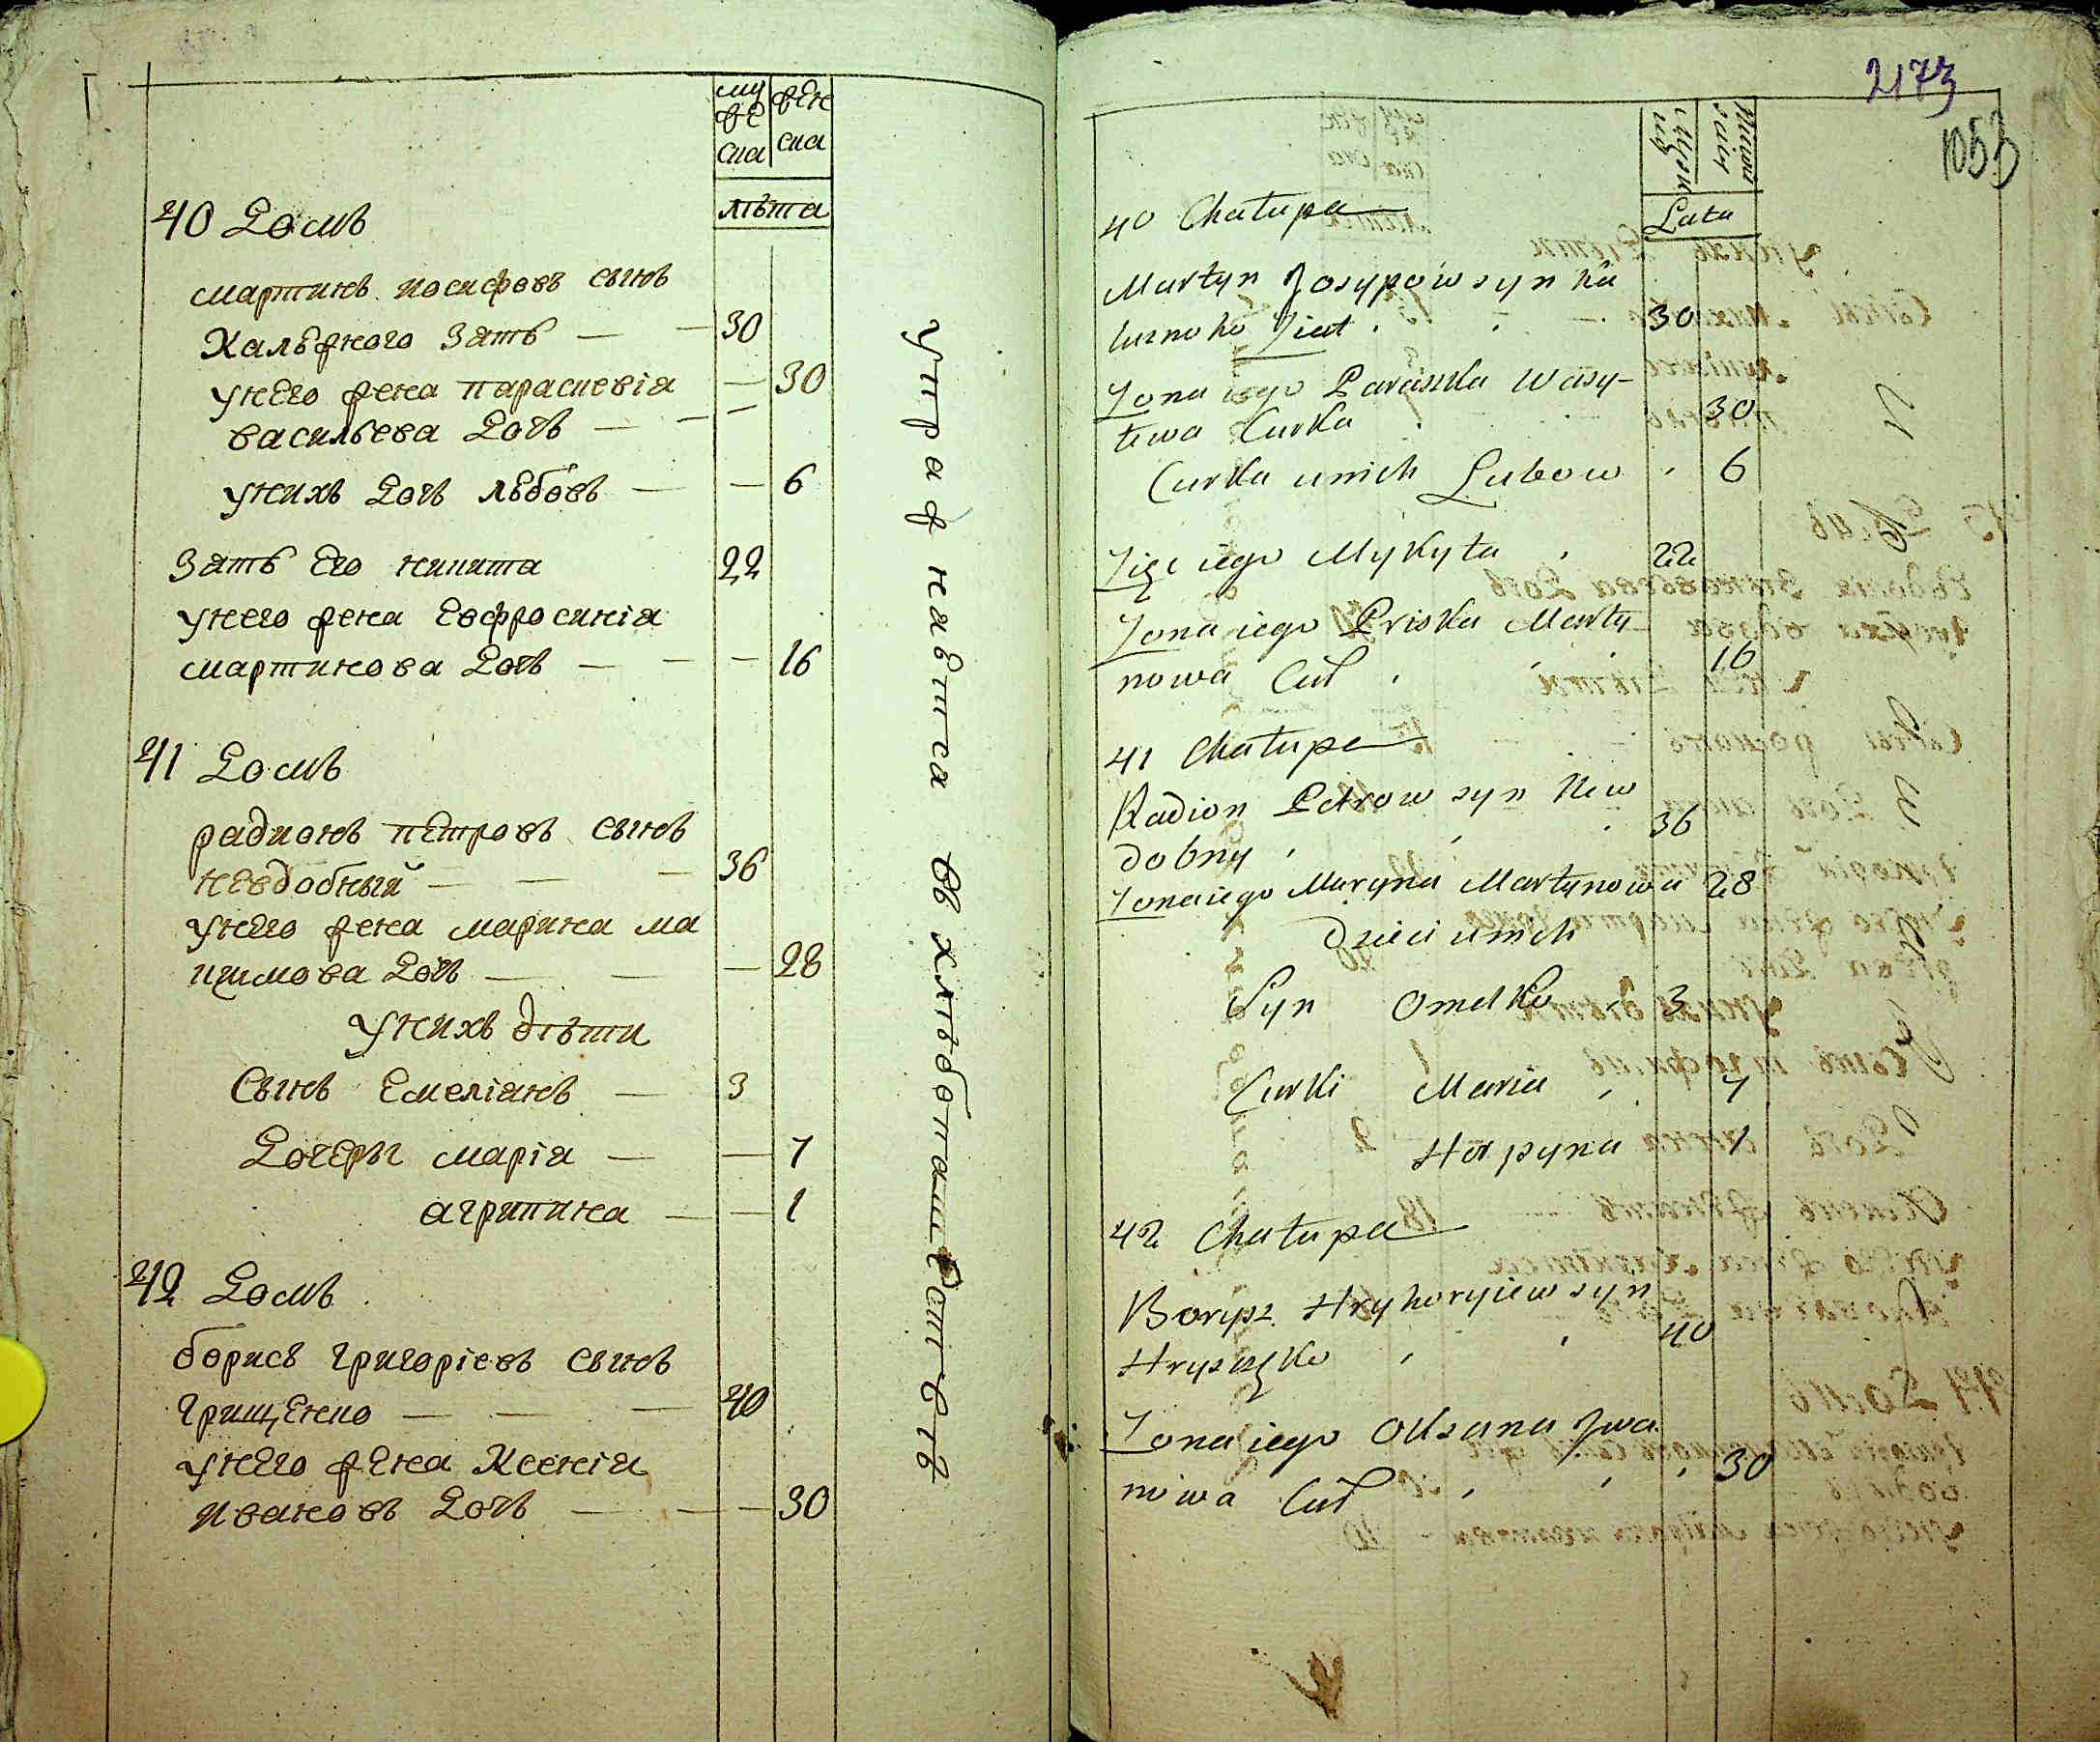 му
же
ска
жен
ска
лѣта
40 Домъ
мартинъ иосифовъ сынъ
Кальѣрного Зять — — 30
унего жена параскевія — 30
васильева Дочъ — —
унихъ Дочъ лѣбовъ — — 6
Зять Его никита 22
унего жена Евфросинія
мартинова Дочъ — — — 16
41 Домъ
радионъ петровъ сынъ
невдобный — — — 36
унего жена марина ма
ѯимова Дочъ — — — 28
унихъ дѣти
Сынъ Емеліянъ — 3
Дочеры марія — — 7
агрипина — — 1
42 Домъ
борисъ григоріевъ сынъ
грищенко — — — 40
унего жена Ксенія
ивановъ Дочъ — — — 30
упражняются въ хлѣбопашествѣ
2173
1053
Lata
40 Chałupa
Martyn Josypów syn Ka
lurnoho Ziat 30
Zona iego Paraska Wasy-
lewa Curka 30
Curka unich Lubow 6
Zięć iego Mykyta 22
Zona iego Priska Marty
nowa Cur 16
41 Chałupa
Radion Petrow syn New
dobny 36
Zona iego Maryna Martynowa 28
Dzieci unich
Syn Omelko 3
Curki Maria 7
Horpyna 1
42 Chałupa
Borys Hryhoryiew syn
Hryszko 40
Zona iego Oksana Jwa
nowa Cur 30